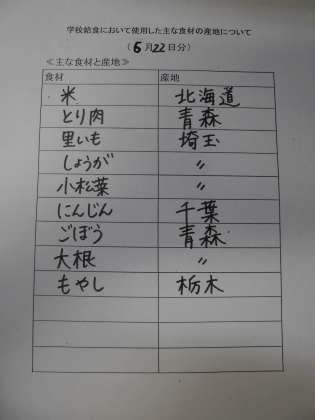 学校給食において使用した主な食材の産地について
(6月22日分)
≪主な食材と産地≫
食材 産地
米 北海道
とり肉 青森
里いも 埼玉
しょうが 〃
小松菜 〃
にんじん 千葉
ごぼう 青森
大根 〃
もやし 栃木